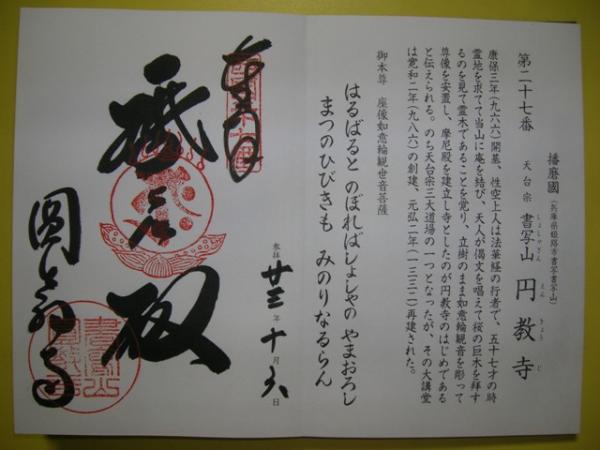 播磨國（兵庫県姫路市書写書写山）
第二十七番　天台宗　書写山　円教寺
しょしゃさん　えんきょうじ
康保三年（九六六）開基、性空上人は法華経の行者で、五十七才の時
霊地を求てて当山に庵を結び、天人が偈文を唱えて桜の巨木を拝す
るのを見て霊木であることを覚り、立樹のまま如意輪観音を彫って
尊像を安置し、摩尼殿を建立し寺としたのが円教寺のはじめである
と伝えられる。のち天台宗三大道場の一つとなったが、その大講堂
は寛和二年（九八六）の創建、元弘二年（一三三二）再建された。
御本尊　座像如意輪観世音菩薩
はるばると　のぼればしょしゃの　やまおろし
まつのひびきも　みのりなるらん
参拝　廿三年十月六日
奉拝
摩尼殿
圓教寺